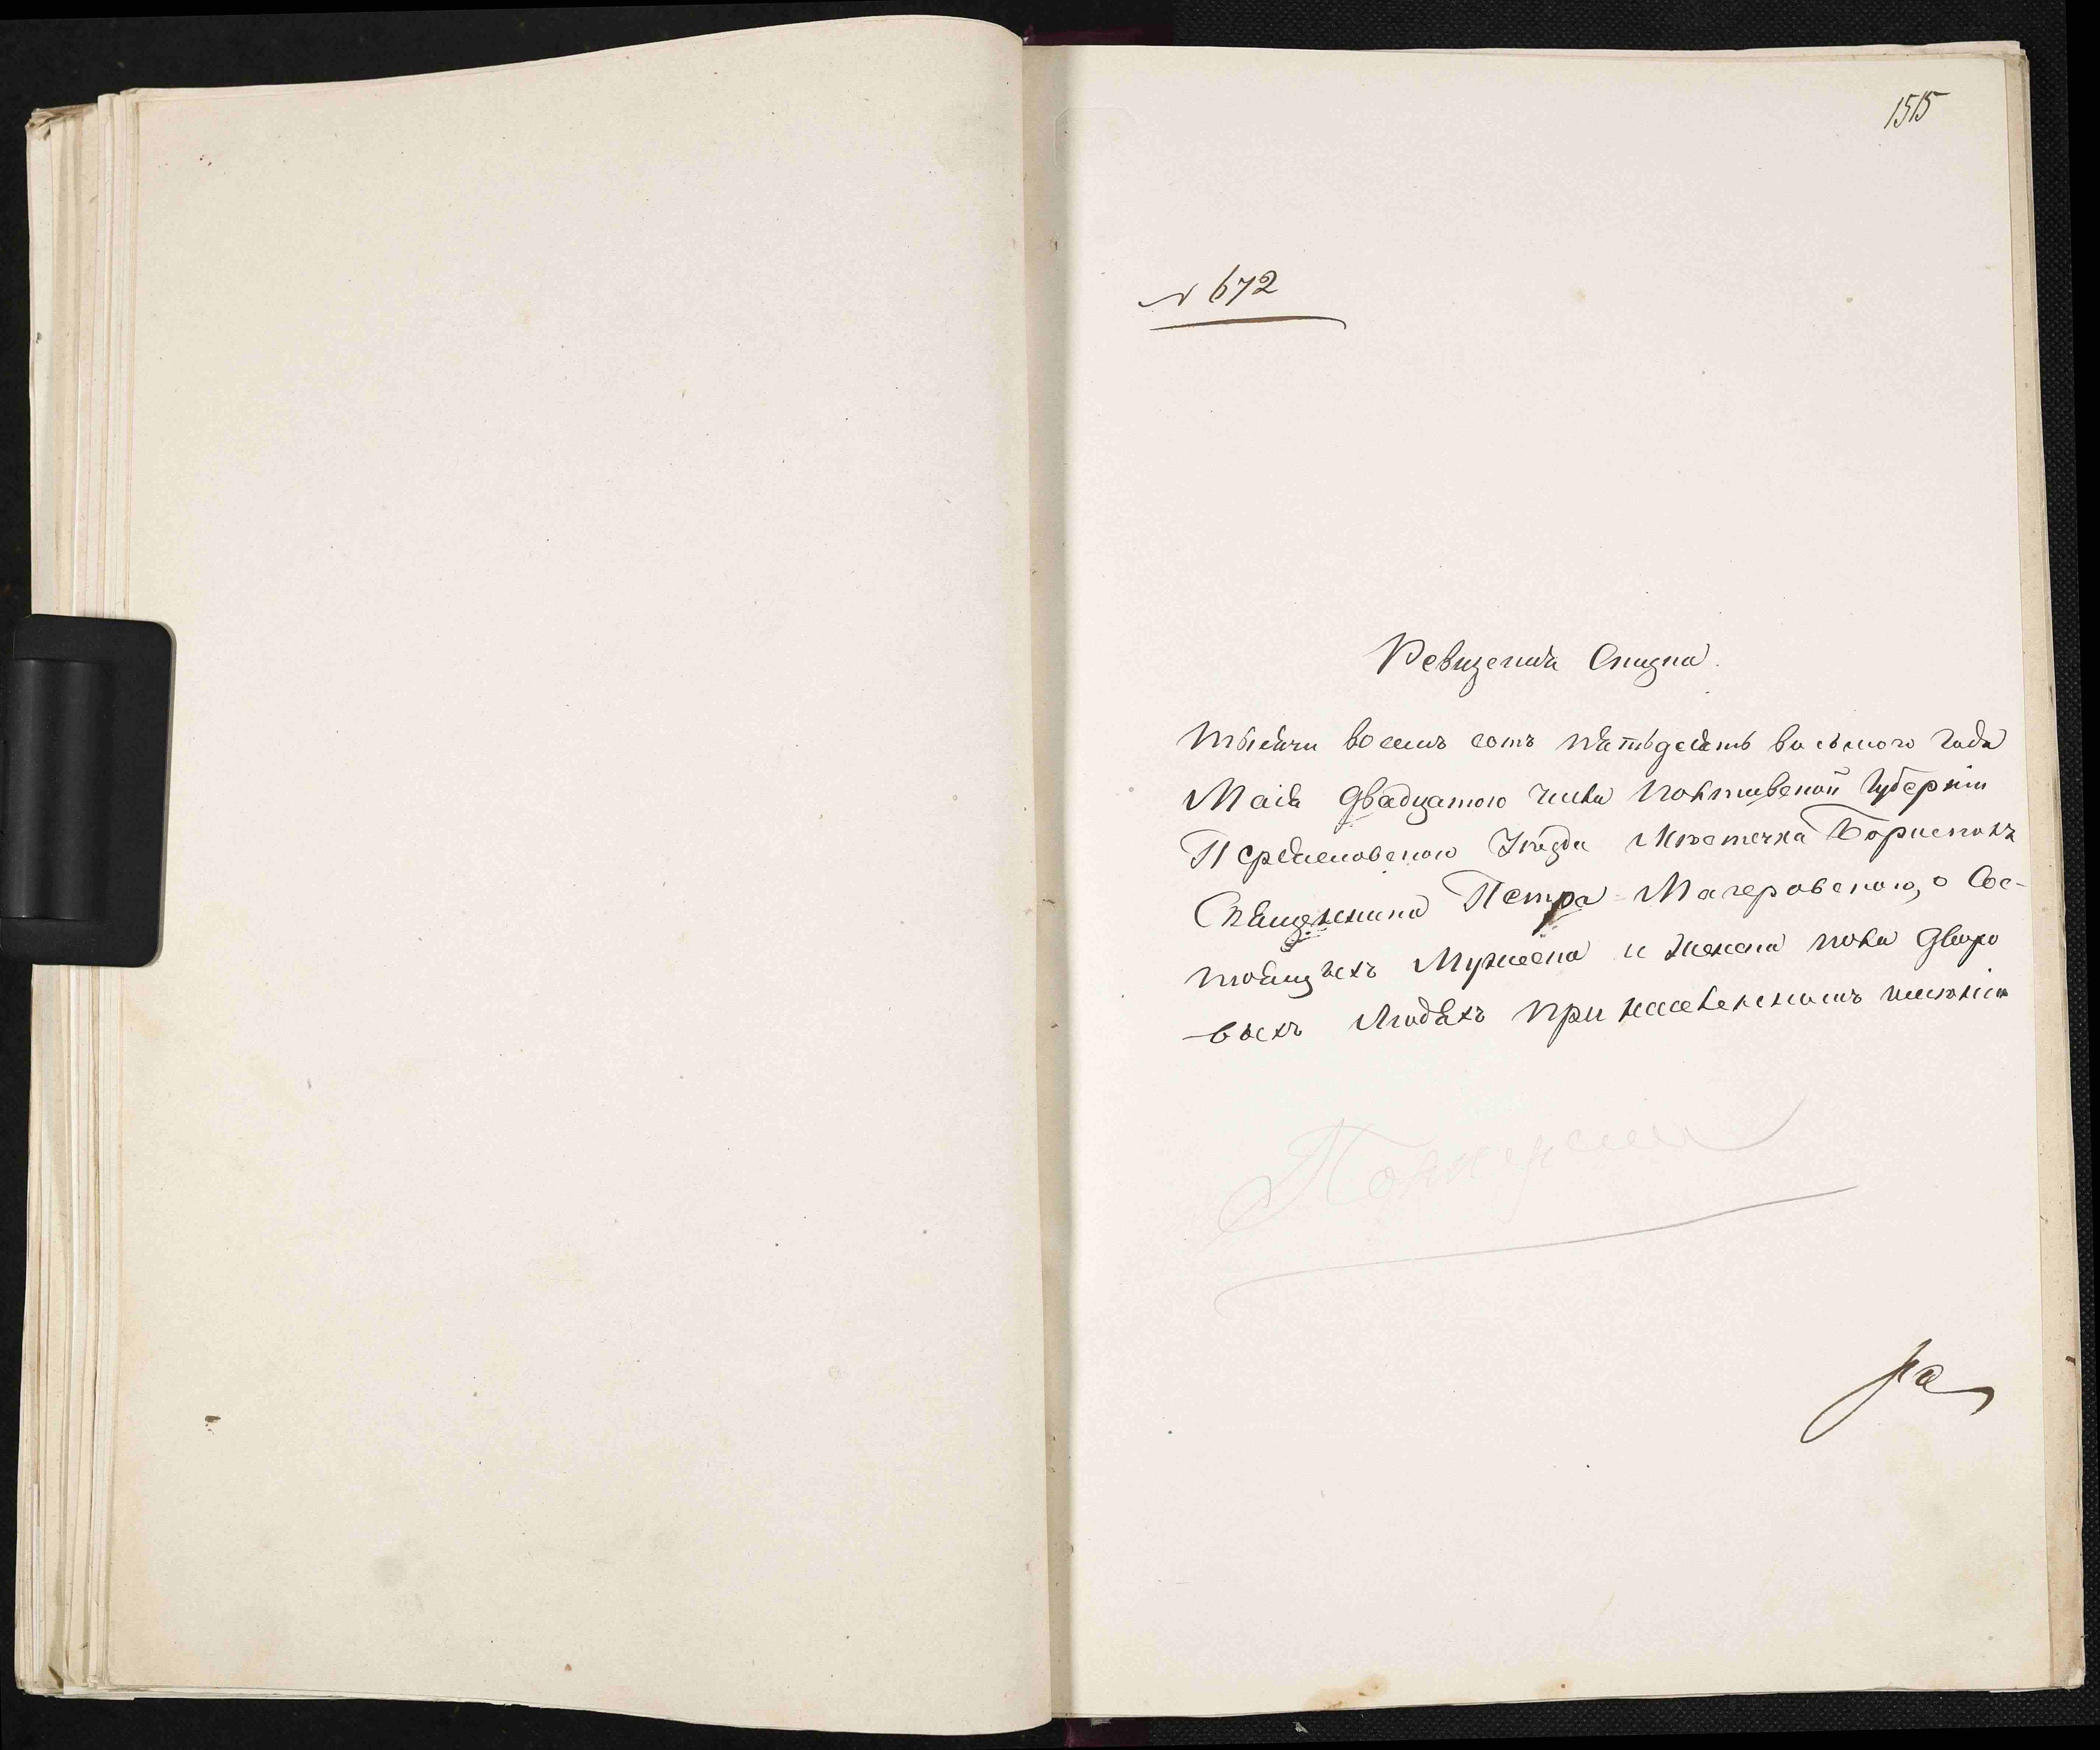 1515
№ 672
Ревизская Сказка.
Тысяча восемь сотъ пятьдесятъ восьмого года
Маія двадцатого числа Полтавской Губерніи
Переяславского Уѣзда Мѣстечка Борисполя
Священника Петра Мачеровского, о Сос-
тоящихъ Мужеска и женска пола дворо
-выхъ людяхъ при населенномъ имѣніи
ра